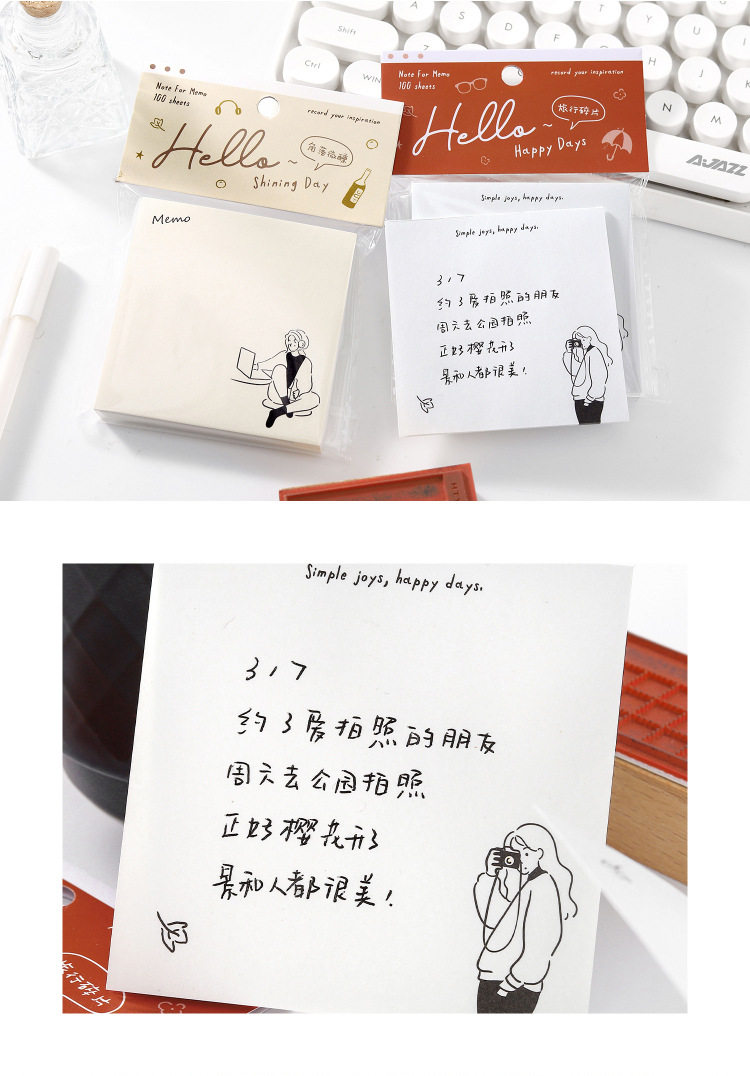 Shift
Ctrl
WIN
A
S
T
Y
U
I
G
H
J
K
N
M
AJAZZ
Note For Memo
100 sheets
record your inspiration
Hello~
角落微醺
Shining Day
Memo
Note For Memo
100 sheets
record your inspiration
Hello~
旅行碎片
Happy Days
Simple joys, happy days.
Simple joys, happy days.
3 1 7
约了爱拍照的朋友
周六去公园拍照
正好樱花开了
景和人都很美!
Simple joys, happy days.
3 1 7
约了爱拍照的朋友
周六去公园拍照
正好樱花开了
景和人都很美!
旅行碎片